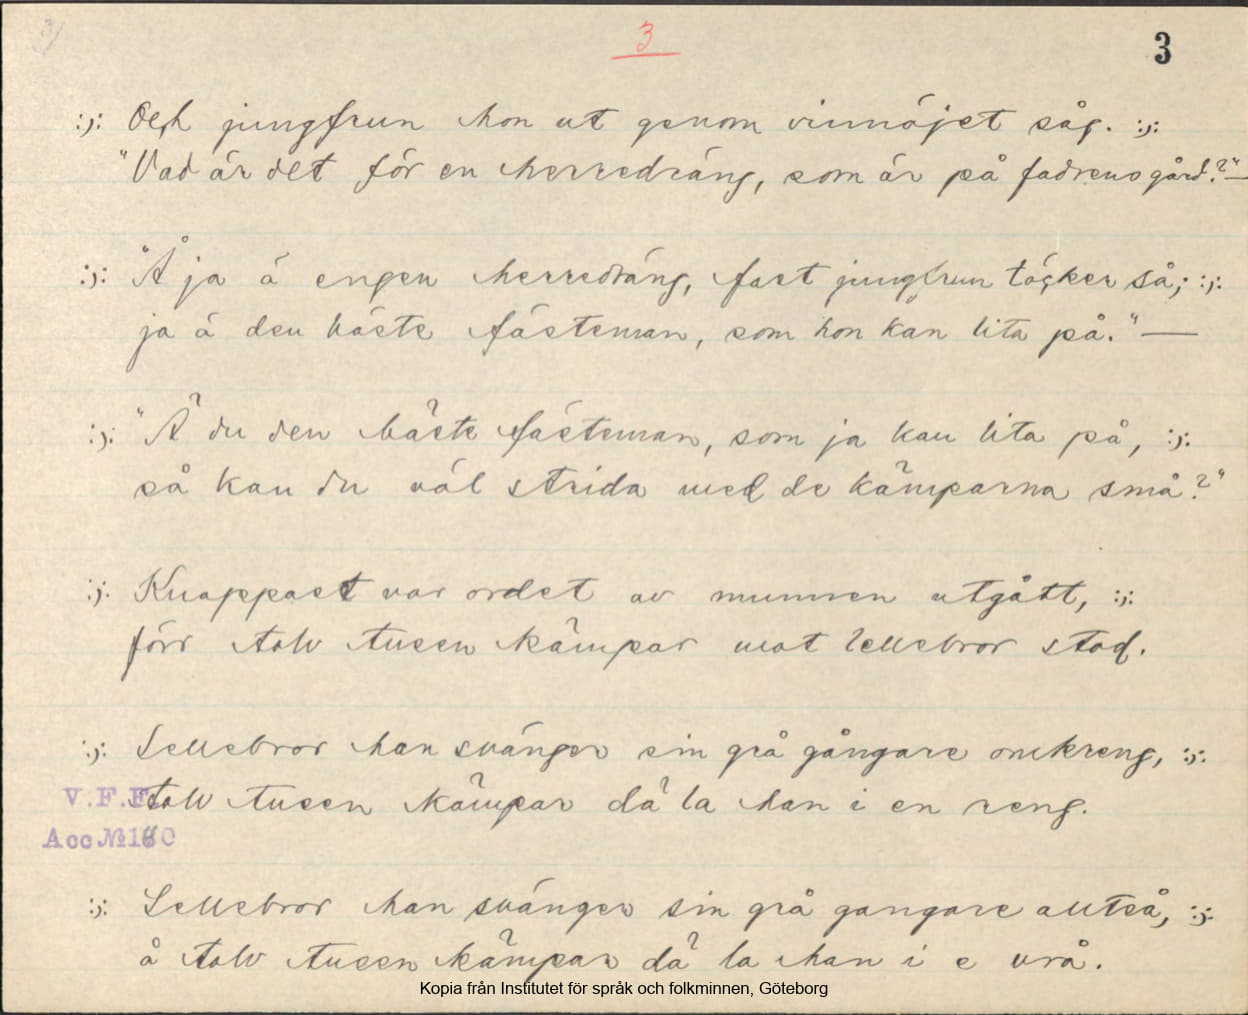 3) 3 3
:;: Och jungfrun hon ut genom vinnöjet såg. :;:
"Vad är det för en herredräng, som är på fadrens gård?"—
:;: "Å ja ä engen herredräng, fast jungfrun täcker så; :;:
ja ä den bäste fästeman, som hon kan lita på."—
:;: "Ä du den bäste fästeman, som ja kan lita på, :;:
så kan du väl strida med de kämparna små?"
:;: Knappast var ordet av munnen utgått, :;:
förr tolv tusen kämpar mot Lellebror stod.
:;: Lellebror han svänger sin grå gångare omkreng, :;:
tolv tusen kämpar dä la han i en reng.
V.F.F.
Acc № 160
:;: Lellebror han svänger sin grå gangare alltså, :;:
å tolv tusen kämpar dä la han i e vrå.
Kopia från Institutet för språk och folkminnen, Göteborg